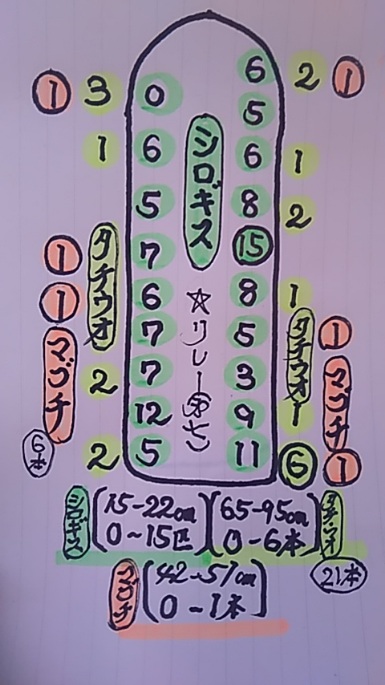 ① 3 0 6 2 ①
5
1 6 6 1
シロギス
5 8 2
① 7 ⑮
タチウオ
① 6 8 1
☆リレー
7 5 ①
タチウオ
マゴチ
2 7 3
マゴチ
12 9 1
6本
2 5 11 ⑥ ①
シロギス (15-22cm 0~15匹) (65-95cm 0-6本) タチウオ
21本
マゴチ (42-51cm 0~1本)